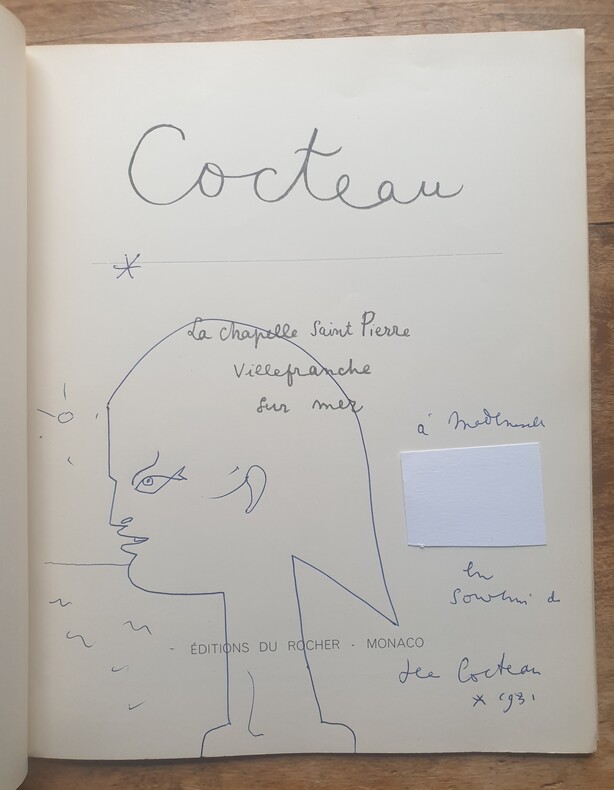 Cocteau
La chapelle Saint Pierre
Villefranche
sur mer
à
en
souvenir de
ÉDITIONS DU ROCHER - MONACO
Jean Cocteau